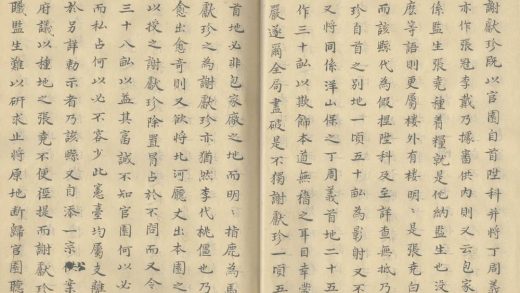 謝獻珍既以官園自首陞科并將丁周義
亦作張冠李戴乃據嗇供內則又云包家
係監生張競種着糧就是他納監生也没
麽等語則更屬樓外有樓明〻是張克白
而該縣代為假捏陞科及至詳查無抵乃
珍自首之别地一頃五十畝為影射又不
又將同係洋山保之丁周義首地二十五
作三十畝以欺飾本道無稽之耳目幸
嚴遂爾全局盡破是不獨謝獻珍一頃五
首地必非包家廠之地而明〻指鹿為馬
獻珍之為謝獻珍亦猶然李代桃僵也乃
愈出愈奇則又欲將北河廳丈出本園之
以授之謝獻珍除置易占於不問而又令
三十八畝以益其富誠不知官園何以必
而私占何以必不容少此憲臺均屬支離
於另詳勒示者乃該縣又自添一宗業
府議以種地之張競不便提而謝獻珍
職監生難以研求止將原地斷歸官園聽